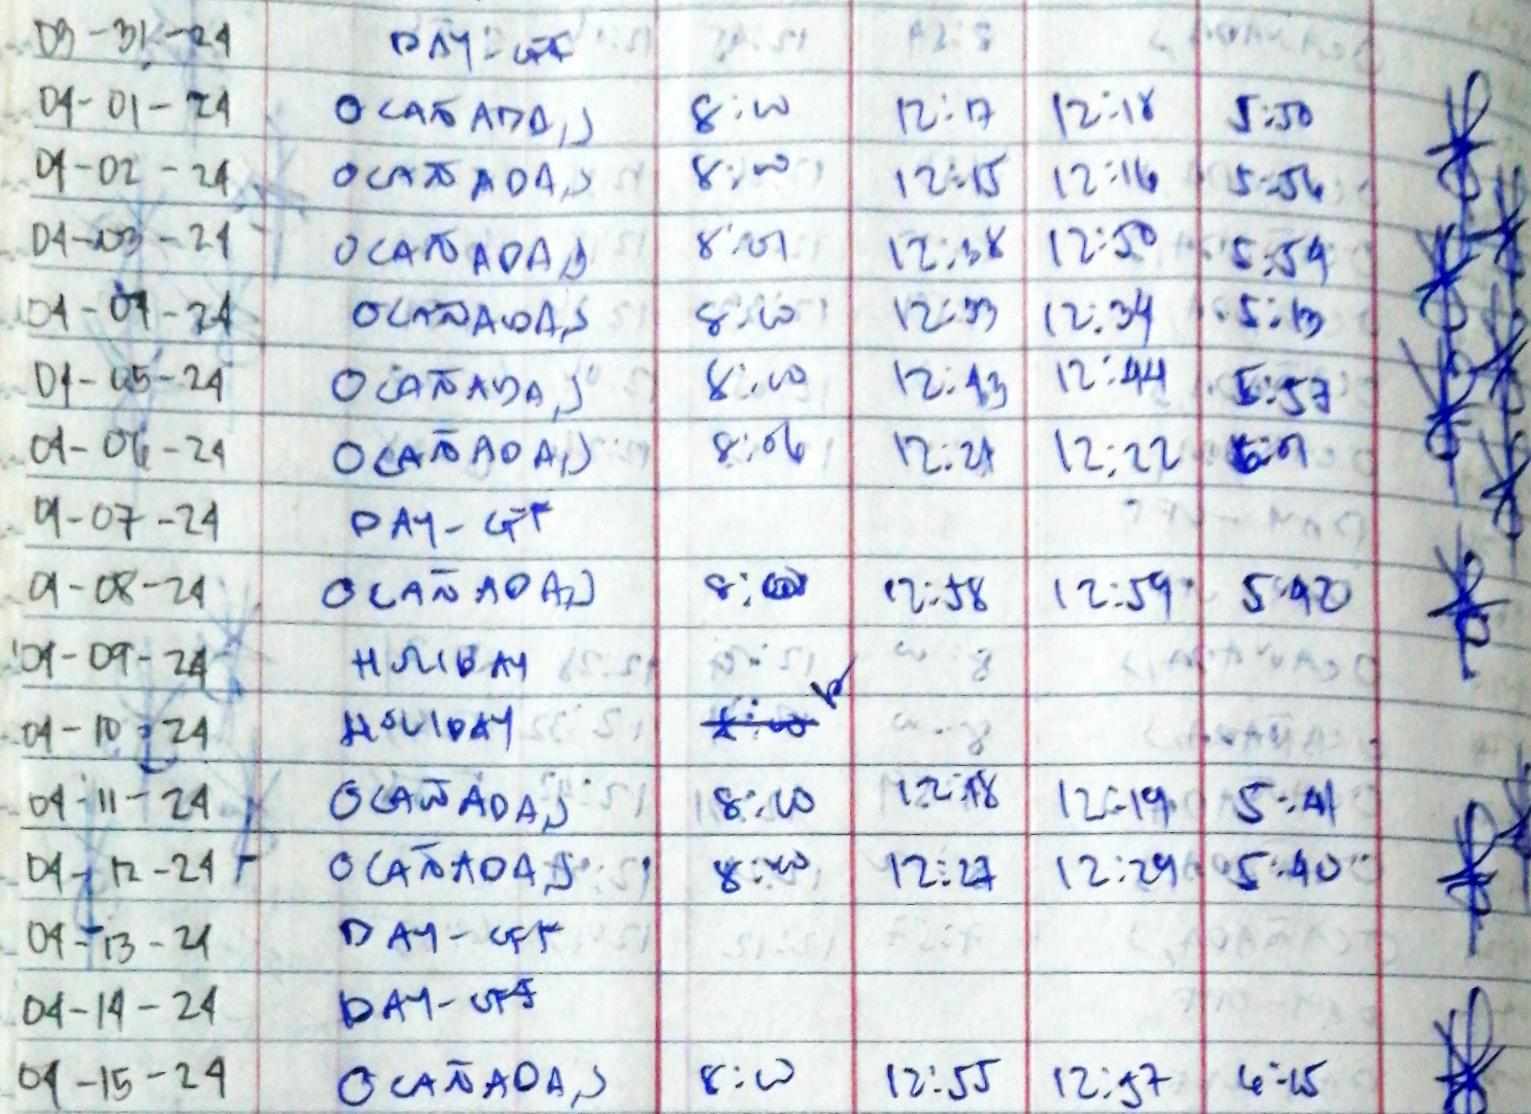 03-31-24 DAY-OFF
04-01-24 OCAÑADA,J 8:00 12:17 12:18 5:50
04-02-24 OCAÑADA,J 8:00 12:15 12:16 5:56
04-03-24 OCAÑADA,J 8:01 12:38 12:50 5:59
04-04-24 OCAÑADA,J 8:00 12:33 12:34 5:13
04-05-24 OCAÑADA,J 8:00 12:43 12:44 5:57
04-06-24 OCAÑADA,J 8:06 12:21 12:22
04-07-24 DAY-OFF
04-08-24 OCAÑADA,J 8:00 12:58 12:59 5:42
04-09-24 HOLIDAY
04-10-24 HOLIDAY 8:00
04-11-24 OCAÑADA,J 8:00 12:18 12:19 5:41
04-12-24 OCAÑADA,J 8:00 12:27 12:29 5:40
04-13-24 DAY-OFF
04-14-24 DAY-OFF
04-15-24 OCAÑADA,J 8:00 12:55 12:57 6:15